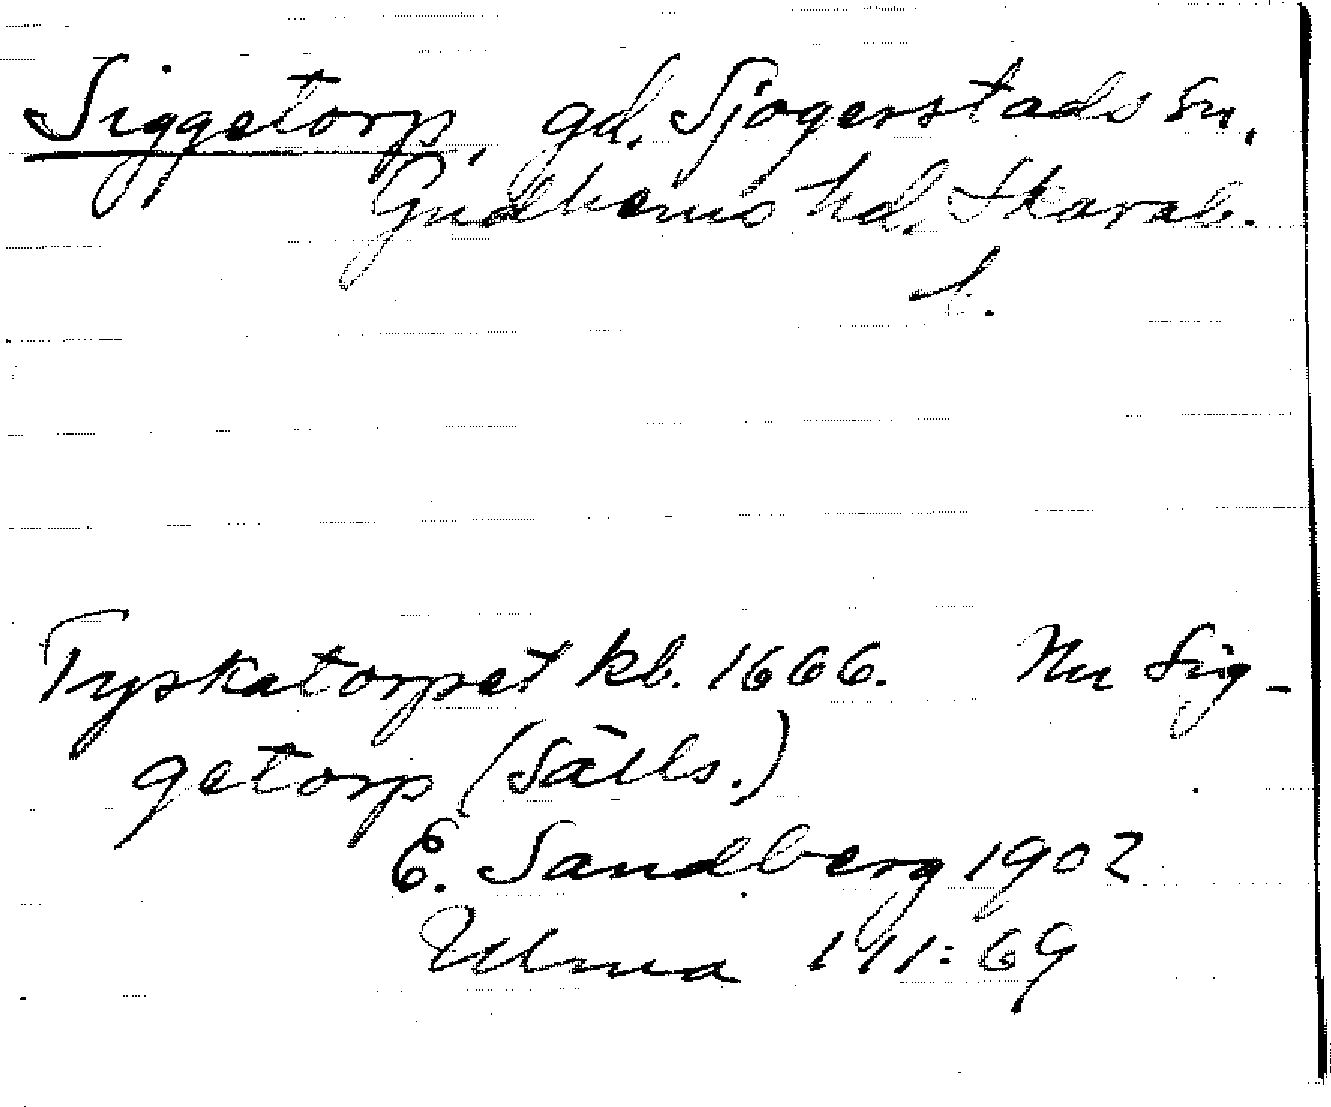 Siggetorp, gd. Sjogerstads sn,
Gudhems hd. Skarab.
l.
Tyskatorpet kb. 1666. Nu Sig-
getorp (Sälls.)
E. Sandberg 1902
Ulma 111:69